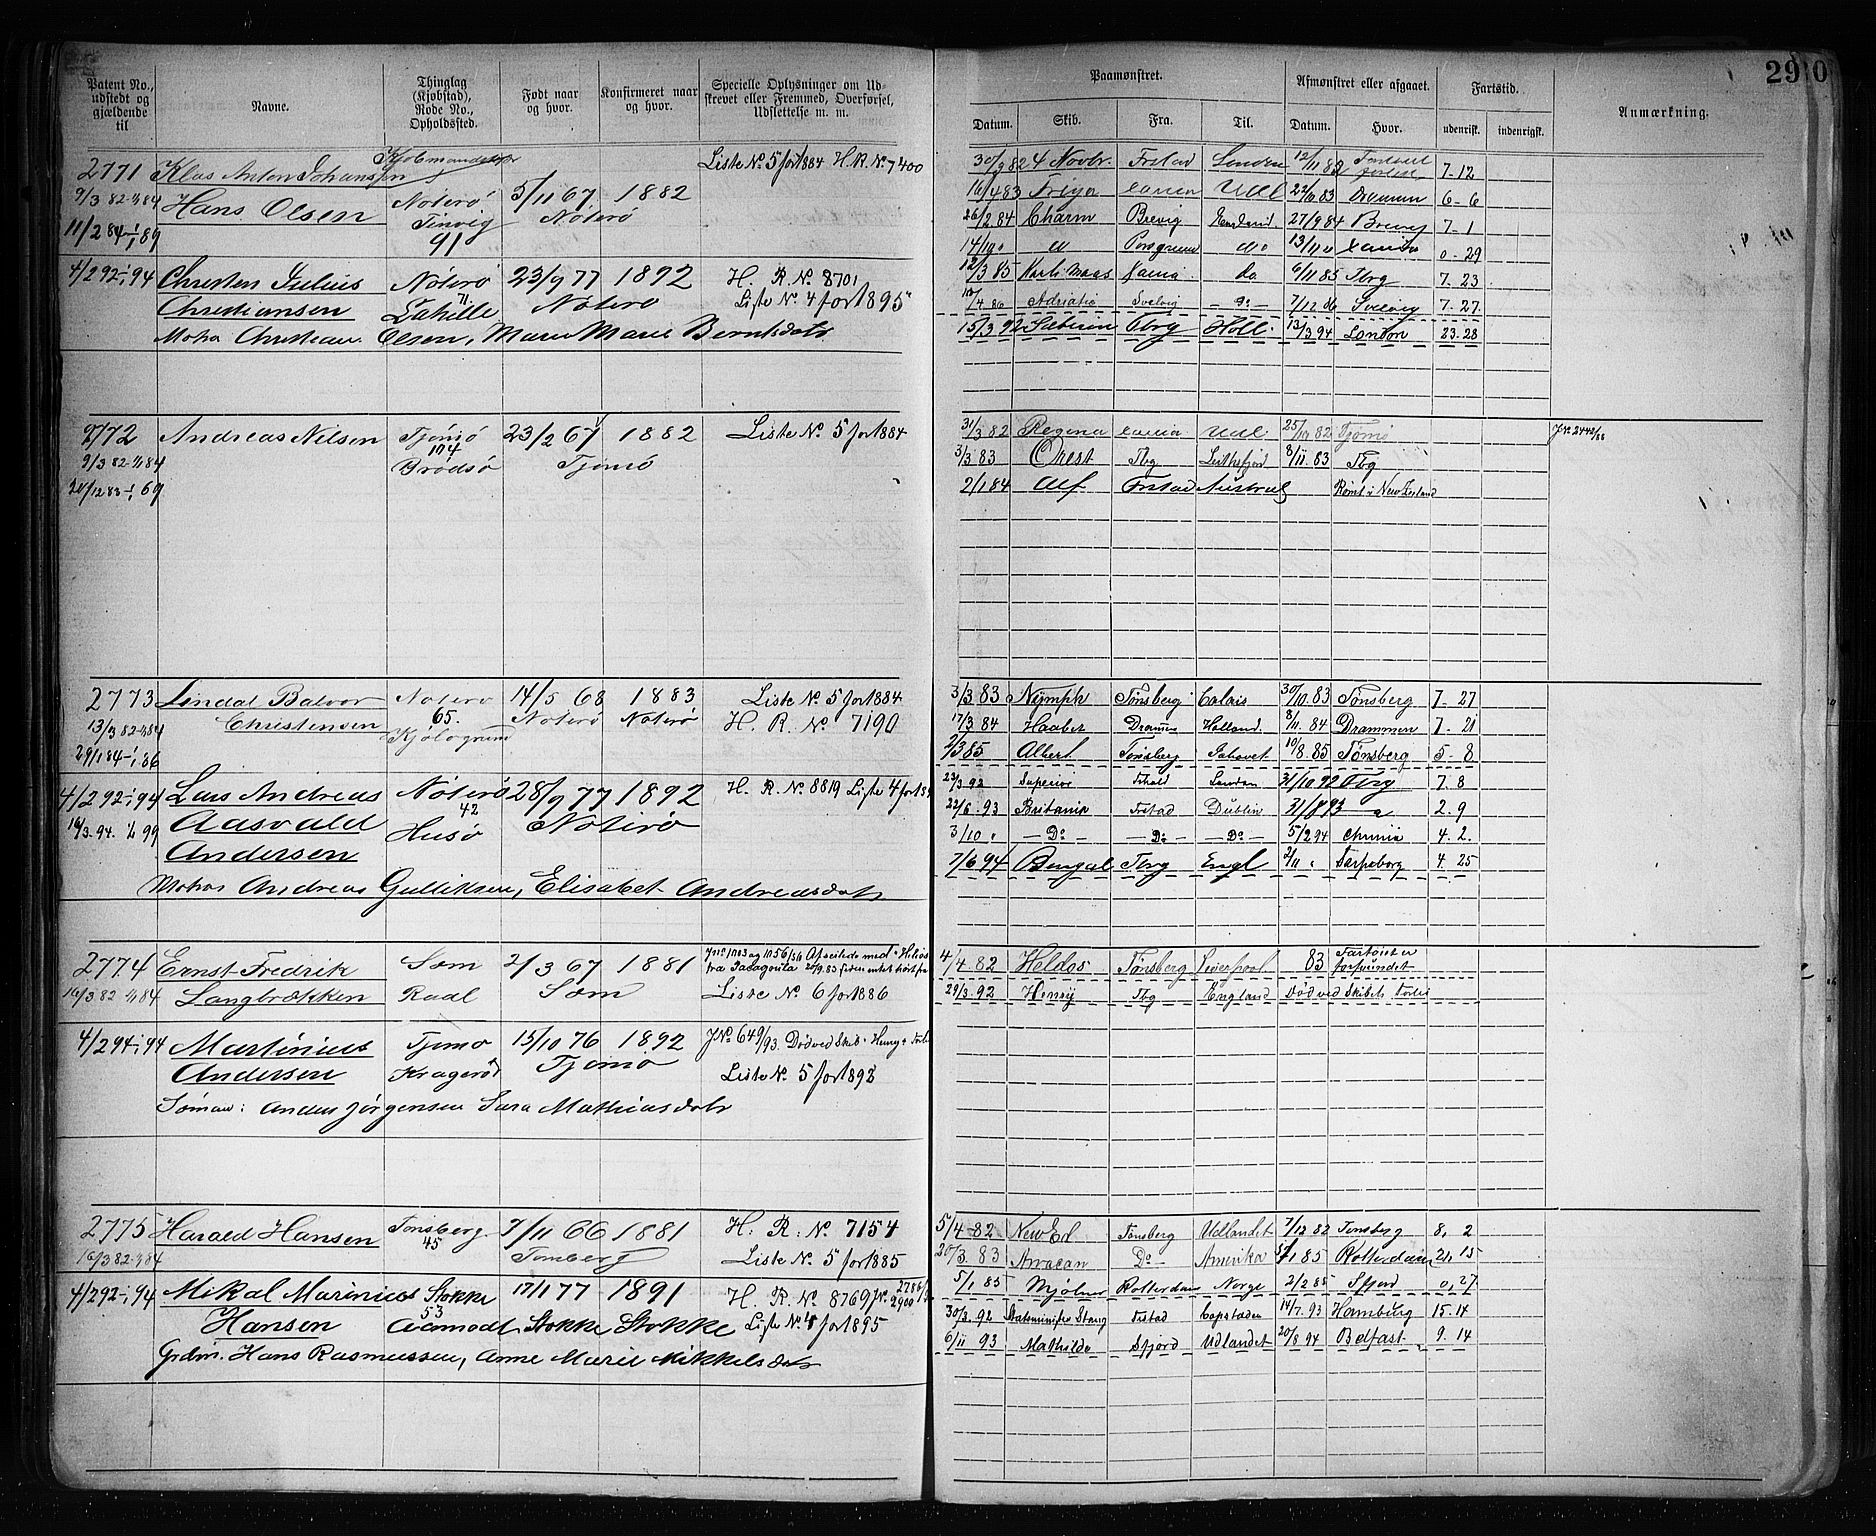 290
Patent No., udstedt og gjældende til
Navne.
Thinglag (Kjøbstad), Rode No., Opholdssted.
Født naar og hvor.
Konfirmeret naar og hvor.
Specielle Oplysninger om Udskrevet eller Fremmed, Overførsel, Udslettelse m. m.
Paamønstret.
Afmønstret eller afgaaet.
Fartstid.
Anmærkning.
Datum. Skib. Fra. Til. Datum. Hvor. udenrigsk. indenrigsk.
2771 Klas Anton Johansen Liste No. 5 for 1884 H.R. No. 7400
9/3 82-1/1 84 Hans Olsen Nøterø 5/11 67 1882
11/2 84-1/1 89 Tinvig Nøterø
91
30/3 82 4 Novbr. Frstad London 12/11 82 7-12
16/4 83 Freya Udl 22/10 83 Drammen 6-6
26/2 84 Charm Brevig 27/9 84 Brevig 7-1
14/10 Porsgrund do 13/11 0-29
12/3 85 do 6/11 85 Tbrg 7.23
/4 86 Adriatic Svelvig Do 7/12 86 Svelvig 7.27
4/2 92-1/1 94 Christen Julius Nøterø 23/9 77 1892 H. R. No. 8701
Christiansen 71 Nøterø Liste No. 4 for 1895
Olsen, Maren Marie Berntsdatr
15/3 92 Tbrg Holl. 13/3 94 London 23-28
2772 Andreas Nilsen Tjømø 23/2 67 1882 Liste No. 5 for 1884
9/3 82-1/1 84 104 Tjømø
20/12 83-1/1 69 Brødsø
31/3 82 Regina Udl. 25/10 82 Tjømø
3/3 83 Orest Tbg 3/11 83 Tbg
2/1 84 Alf Frstad Austral Rømt i New Zealand
2773 Lindal Balvor Nøterø 14/5 68 1883 Liste No. 5 for 1884
13/3 82-1/1 84 Christensen 65. Nøterø Nøterø H. R. No. 7190
29/1 84-1/1 86 Kjøløgrund
3/3 83 Nymph Tønsberg Calais 30/10 83 Tønsberg 7-27
17/3 84 Haabet Dramen Holland 8/11 84 Drammen 7-21
2/3 85 Albert Tønsberg Ishavet 10/8 85 Tønsberg 5-8
4/2 92-1/1 94 Lars Andreas Nøterø 28/9 77 1892 H. R. No. 8819 Liste 4 for 18
16/3 94. 1/1 99 Aasvald 42 Nøterø
Andersen Husø
Andreas Gulliksen, Elisabet Andreasdatr
23/3 92 Superior Frhald London 31/10 92 Tbrg 7.8
22/6 93 Britania Frstad Dublin 31/8 93 2.9
3/10 Do Do Do 5/2 94 4.2.
7/6 94 Bengal Tbrg Engl 2/11 Sarpsborg 4.25
2774 Ernst Fredrik Sæm 2/3 67 1881
16/3 82 1/1 84 Langbrækken Raal Sæm Liste No. 6 for 1886
4/4 82 Heldos Tønsberg Liverpool 83 Fartøiet er forsvundet
29/3 92 Henry Tbg England Død ved Skibets Forlis
4/2 94-1/1 94 Martinius Tjømø 15/10 76 1892 J No. 649/93. Død ved Skib "Henry" Forlis
Andersen Kragerø Tjømø Liste No. 5 for 1893
Sømand: Anders Jørgensen Sara Mathiasdatr
2775 Harald Hansen Tønsberg 7/11 66 1881 H. R. No. 7154
16/3 82-1/1 84 45 Tønsberg Liste No. 5 for 1885
5/4 82 New Ed Tønsberg Udlandet 7/12 82 Tønsberg 8, 2
20/3 83 Arracan Do Amerika 1 85 Rotterdam 21,15
5/1 85 Mjølner Rotterdam Norge 2/2 85 Sfjord 0,27
4/2 92-1/1 94 Mikal Marinius Stokke 17/1 77 1891 H. R. No. 8769
Hansen 53 Aamodt Stokke Stokke Liste No. 4 for 1895
Grdm. Hans Rasmussen, Anne Marie Mikkelsdatr
30/3 92 Statsminister Stang Frstad Capstaden 14/7. 93 Hamburg 15.14
6/11 93 Mathilde Sfjord Udlandet 20/8 94 Belfast. 9.14